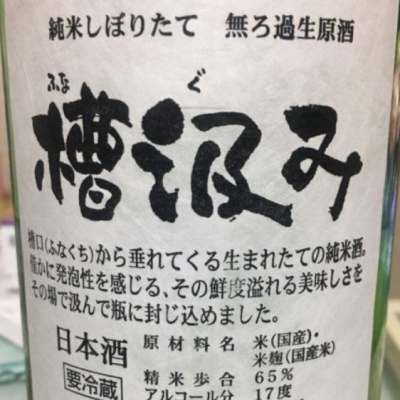 純米しぼりたて 無ろ過生原酒
ふな ぐ
槽汲み
槽口(ふなくち)から垂れてくる生まれたての純米酒。
僅かに発泡性を感じる、その鮮度溢れる美味しさを
その場で汲んで瓶に封じ込めました。
日本酒
要冷蔵
原材料名 米(国産)・
米麹(国産米)
精米歩合 65%
アルコール分 17度